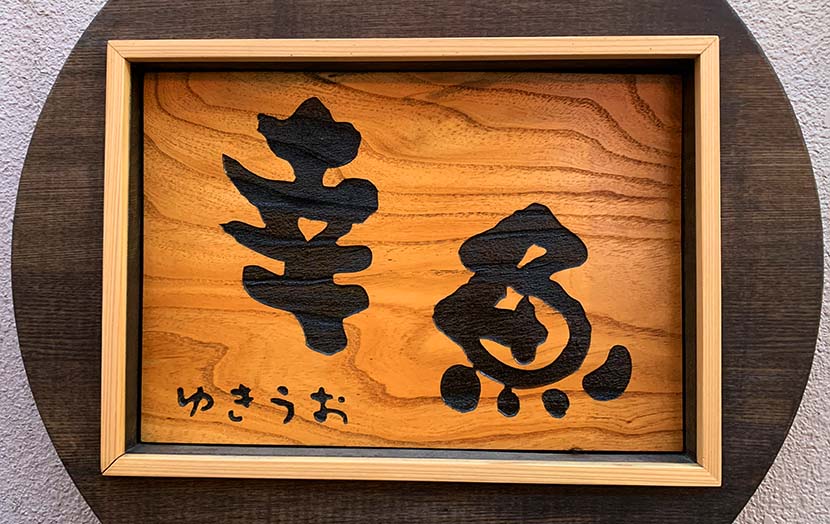 幸魚
ゆきうお